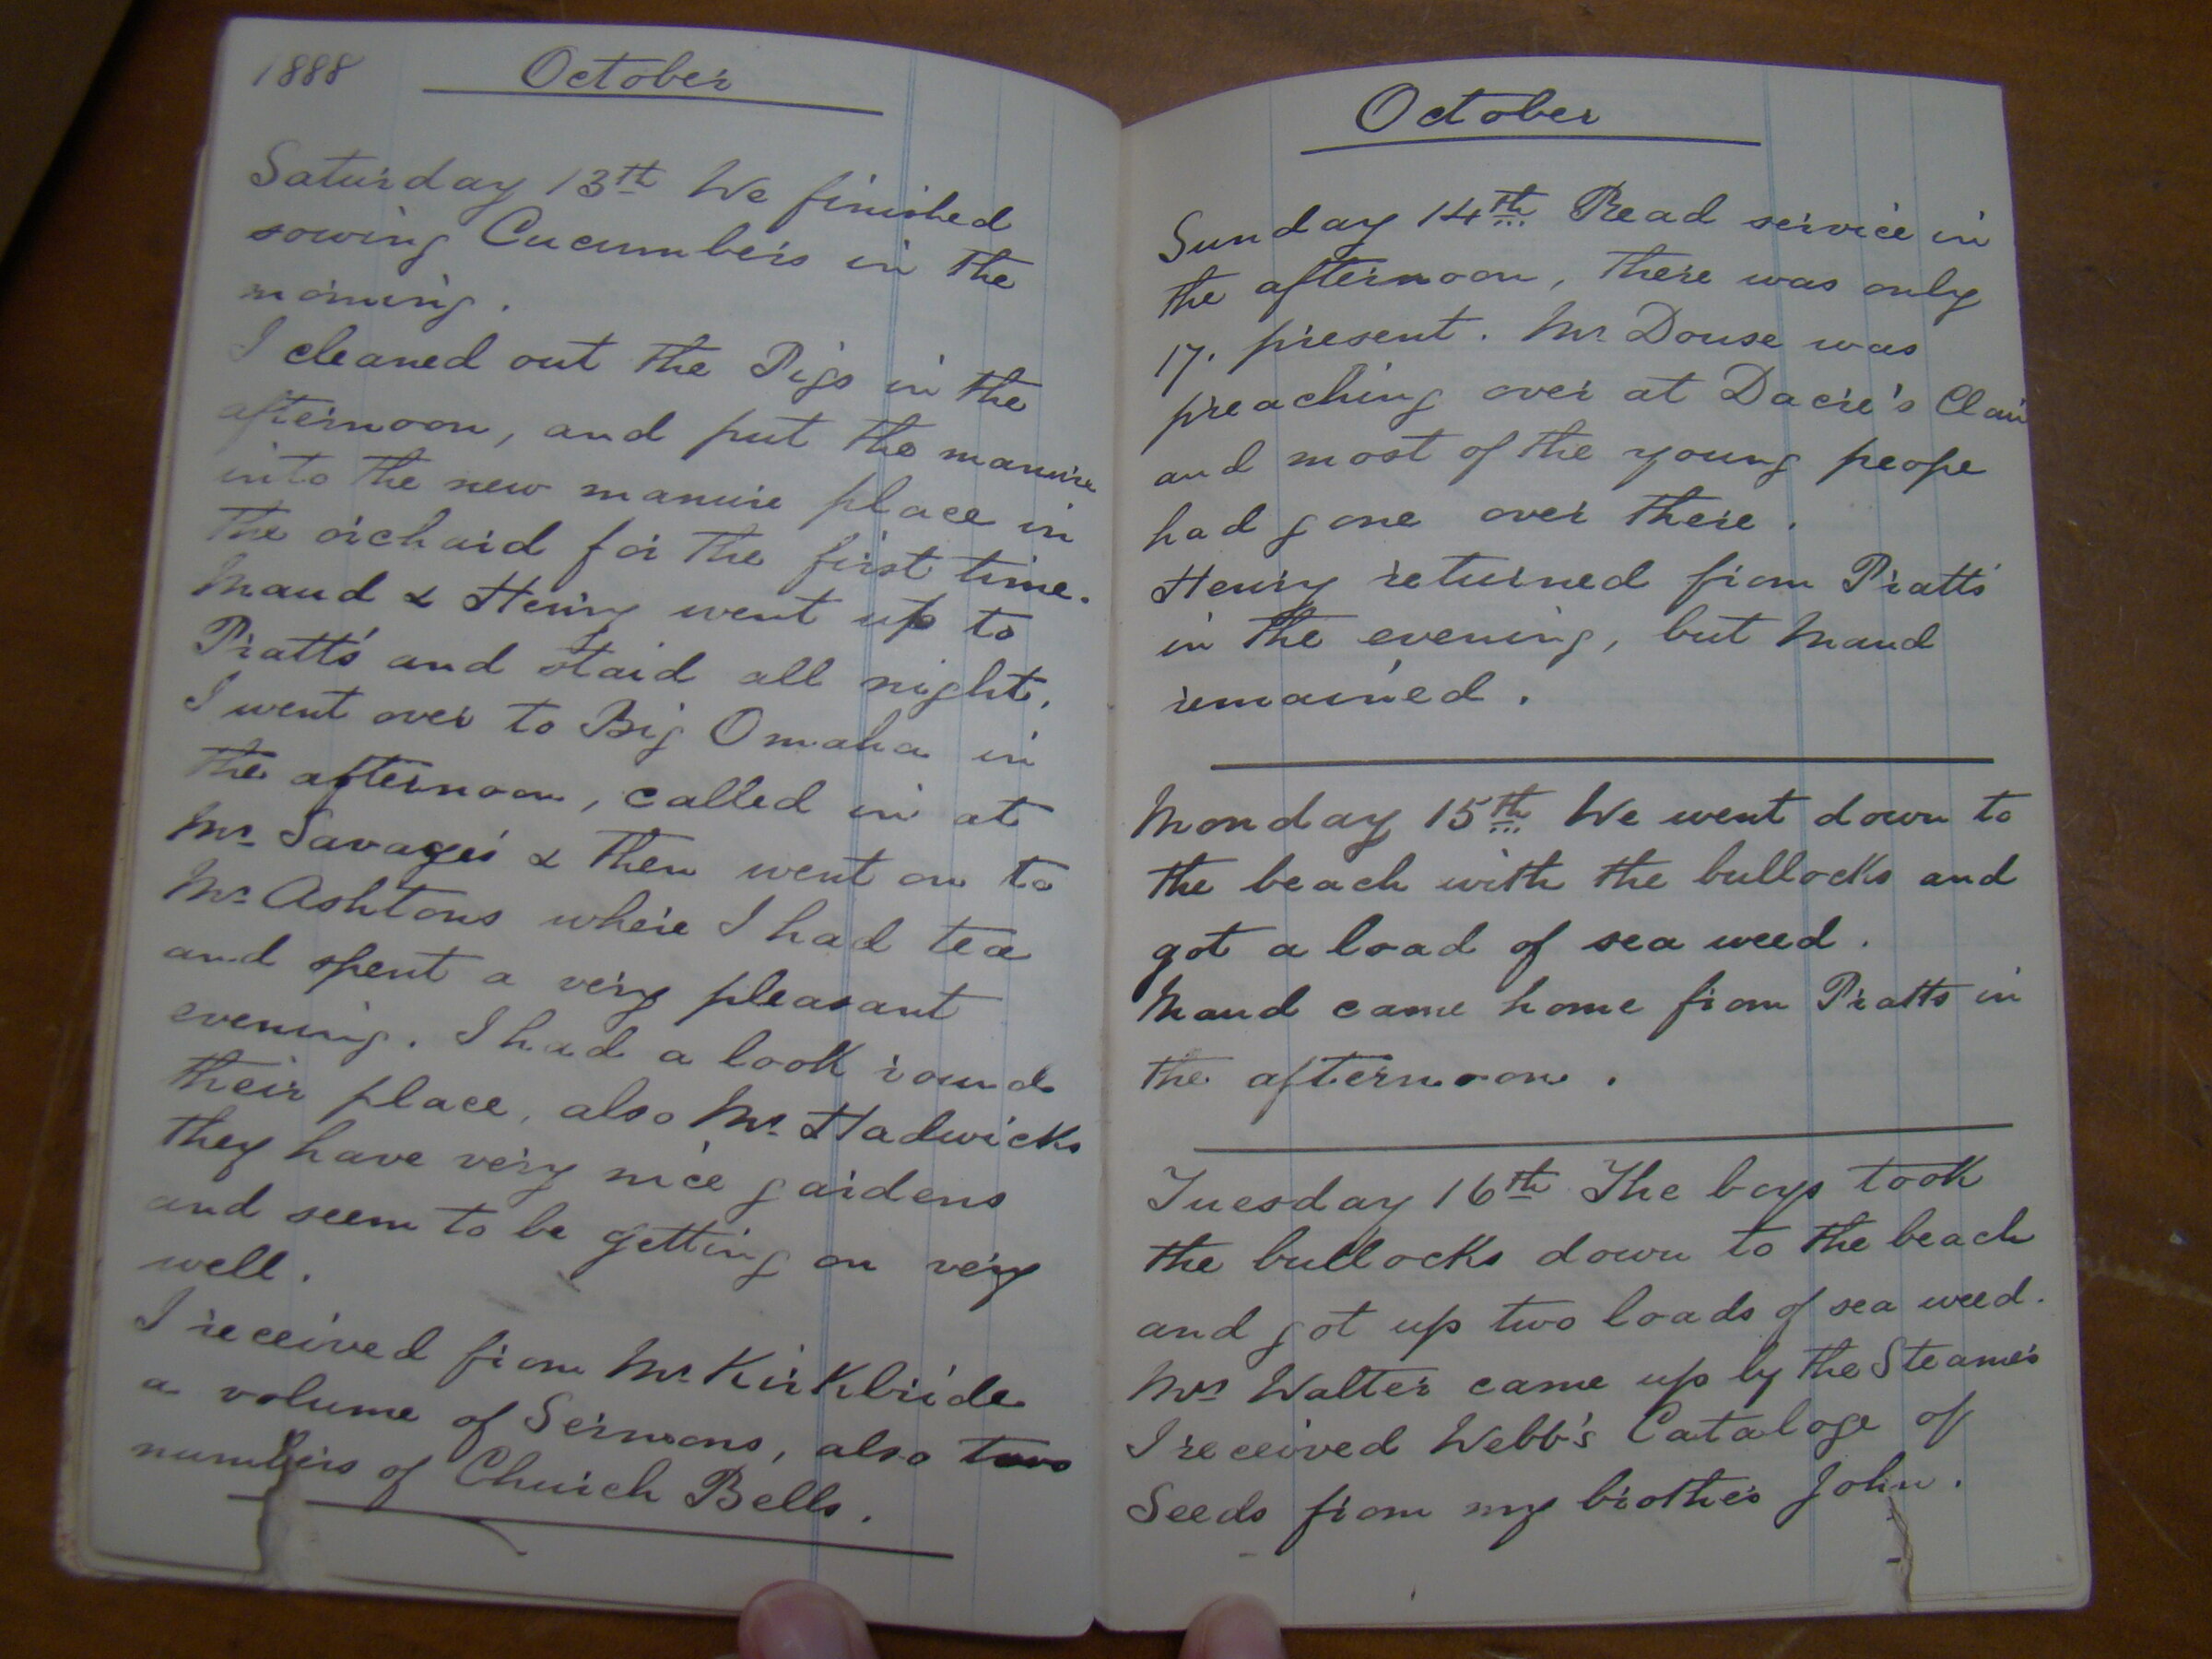 1888 October
Saturday 13th We finished
sowing Cucumbers in the
morning.
I cleaned out the Pigs in the
afternoon, and put the manure
into the new manure place in
the orchard for the first time.
Maud & Henry went up to
Pratt's and staid all night.
I went over to Big Omaha in
the afternoon, called in at
Mr Savages & then went on to
Mr Ashtons where I had tea
and spent a very pleasant
evening. I had a look round
their place, also Mr Hadwicks
they have very nice gardens
and seem to be getting on very
well.
I received from Mr Kirkbride
a volume of Sermons, also two
numbers of Church Bells.
October
Sunday 14th Read service in
the afternoon, there was only
17. present. Mr Douse was
preaching over at Dacre's
and most of the young peope
had gone over there.
Henry returned from Pratts'
in the evening, but Maud
remained.
Monday 15th We went down to
the beach with the bullocks and
got a load of sea weed.
Maud came home from Pratts in
the afternoon.
Tuesday 16th The boys took
the bullocks down to the beach
and got up two loads of sea weed.
Mrs Walter came up by the Steamer
I received Webb's Cataloge of
Seeds from my brother John.